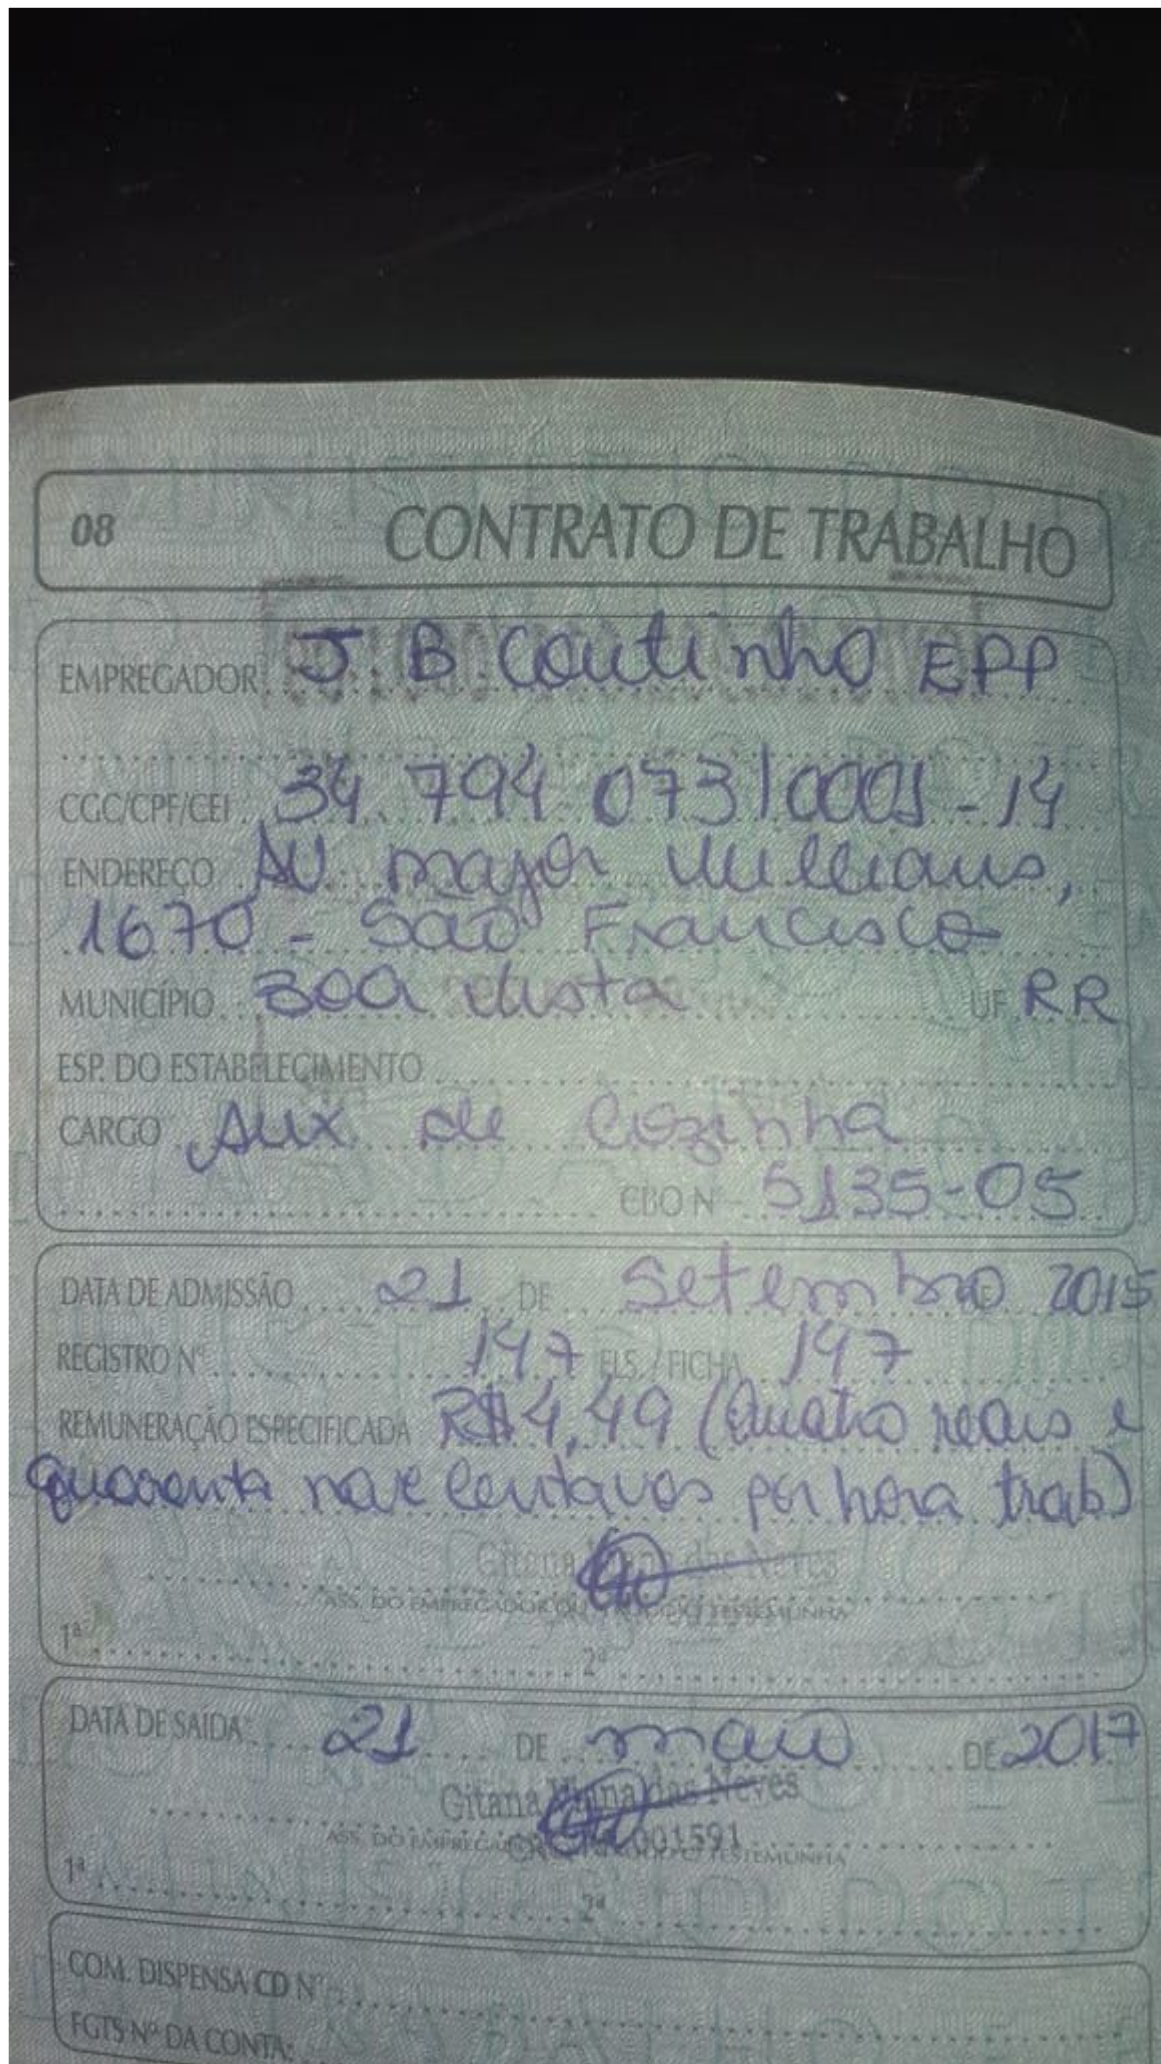 08 CONTRATO DE TRABALHO
EMPREGADOR J. B Coutinho EPP
CGC/CPF/CEI 34.794.073/0001-14
ENDEREÇO AV major Williams,
1670 - São Francisco
MUNICÍPIO Boa vista UF RR
ESP. DO ESTABELECIMENTO
CARGO Aux de Cozinha
CBO Nº 5135-05
DATA DE ADMISSÃO 21 DE Setembro 2015
REGISTRO Nº 147 FLS. / FICHA 147
REMUNERAÇÃO ESPECIFICADA R$ 4,49 (Quatro reais e
quarenta nove centavos por hora trab)
Gitana das Neves
ASS. DO EMPREGADOR OU TESTEMUNHA
1ª 2ª
DATA DE SAÍDA 21 DE maio DE 2017
Gitana Viana das Neves
001591
ASS. DO EMPREGADOR TESTEMUNHA
1ª 2ª
COM. DISPENSA CD Nº
FGTS Nº DA CONTA: